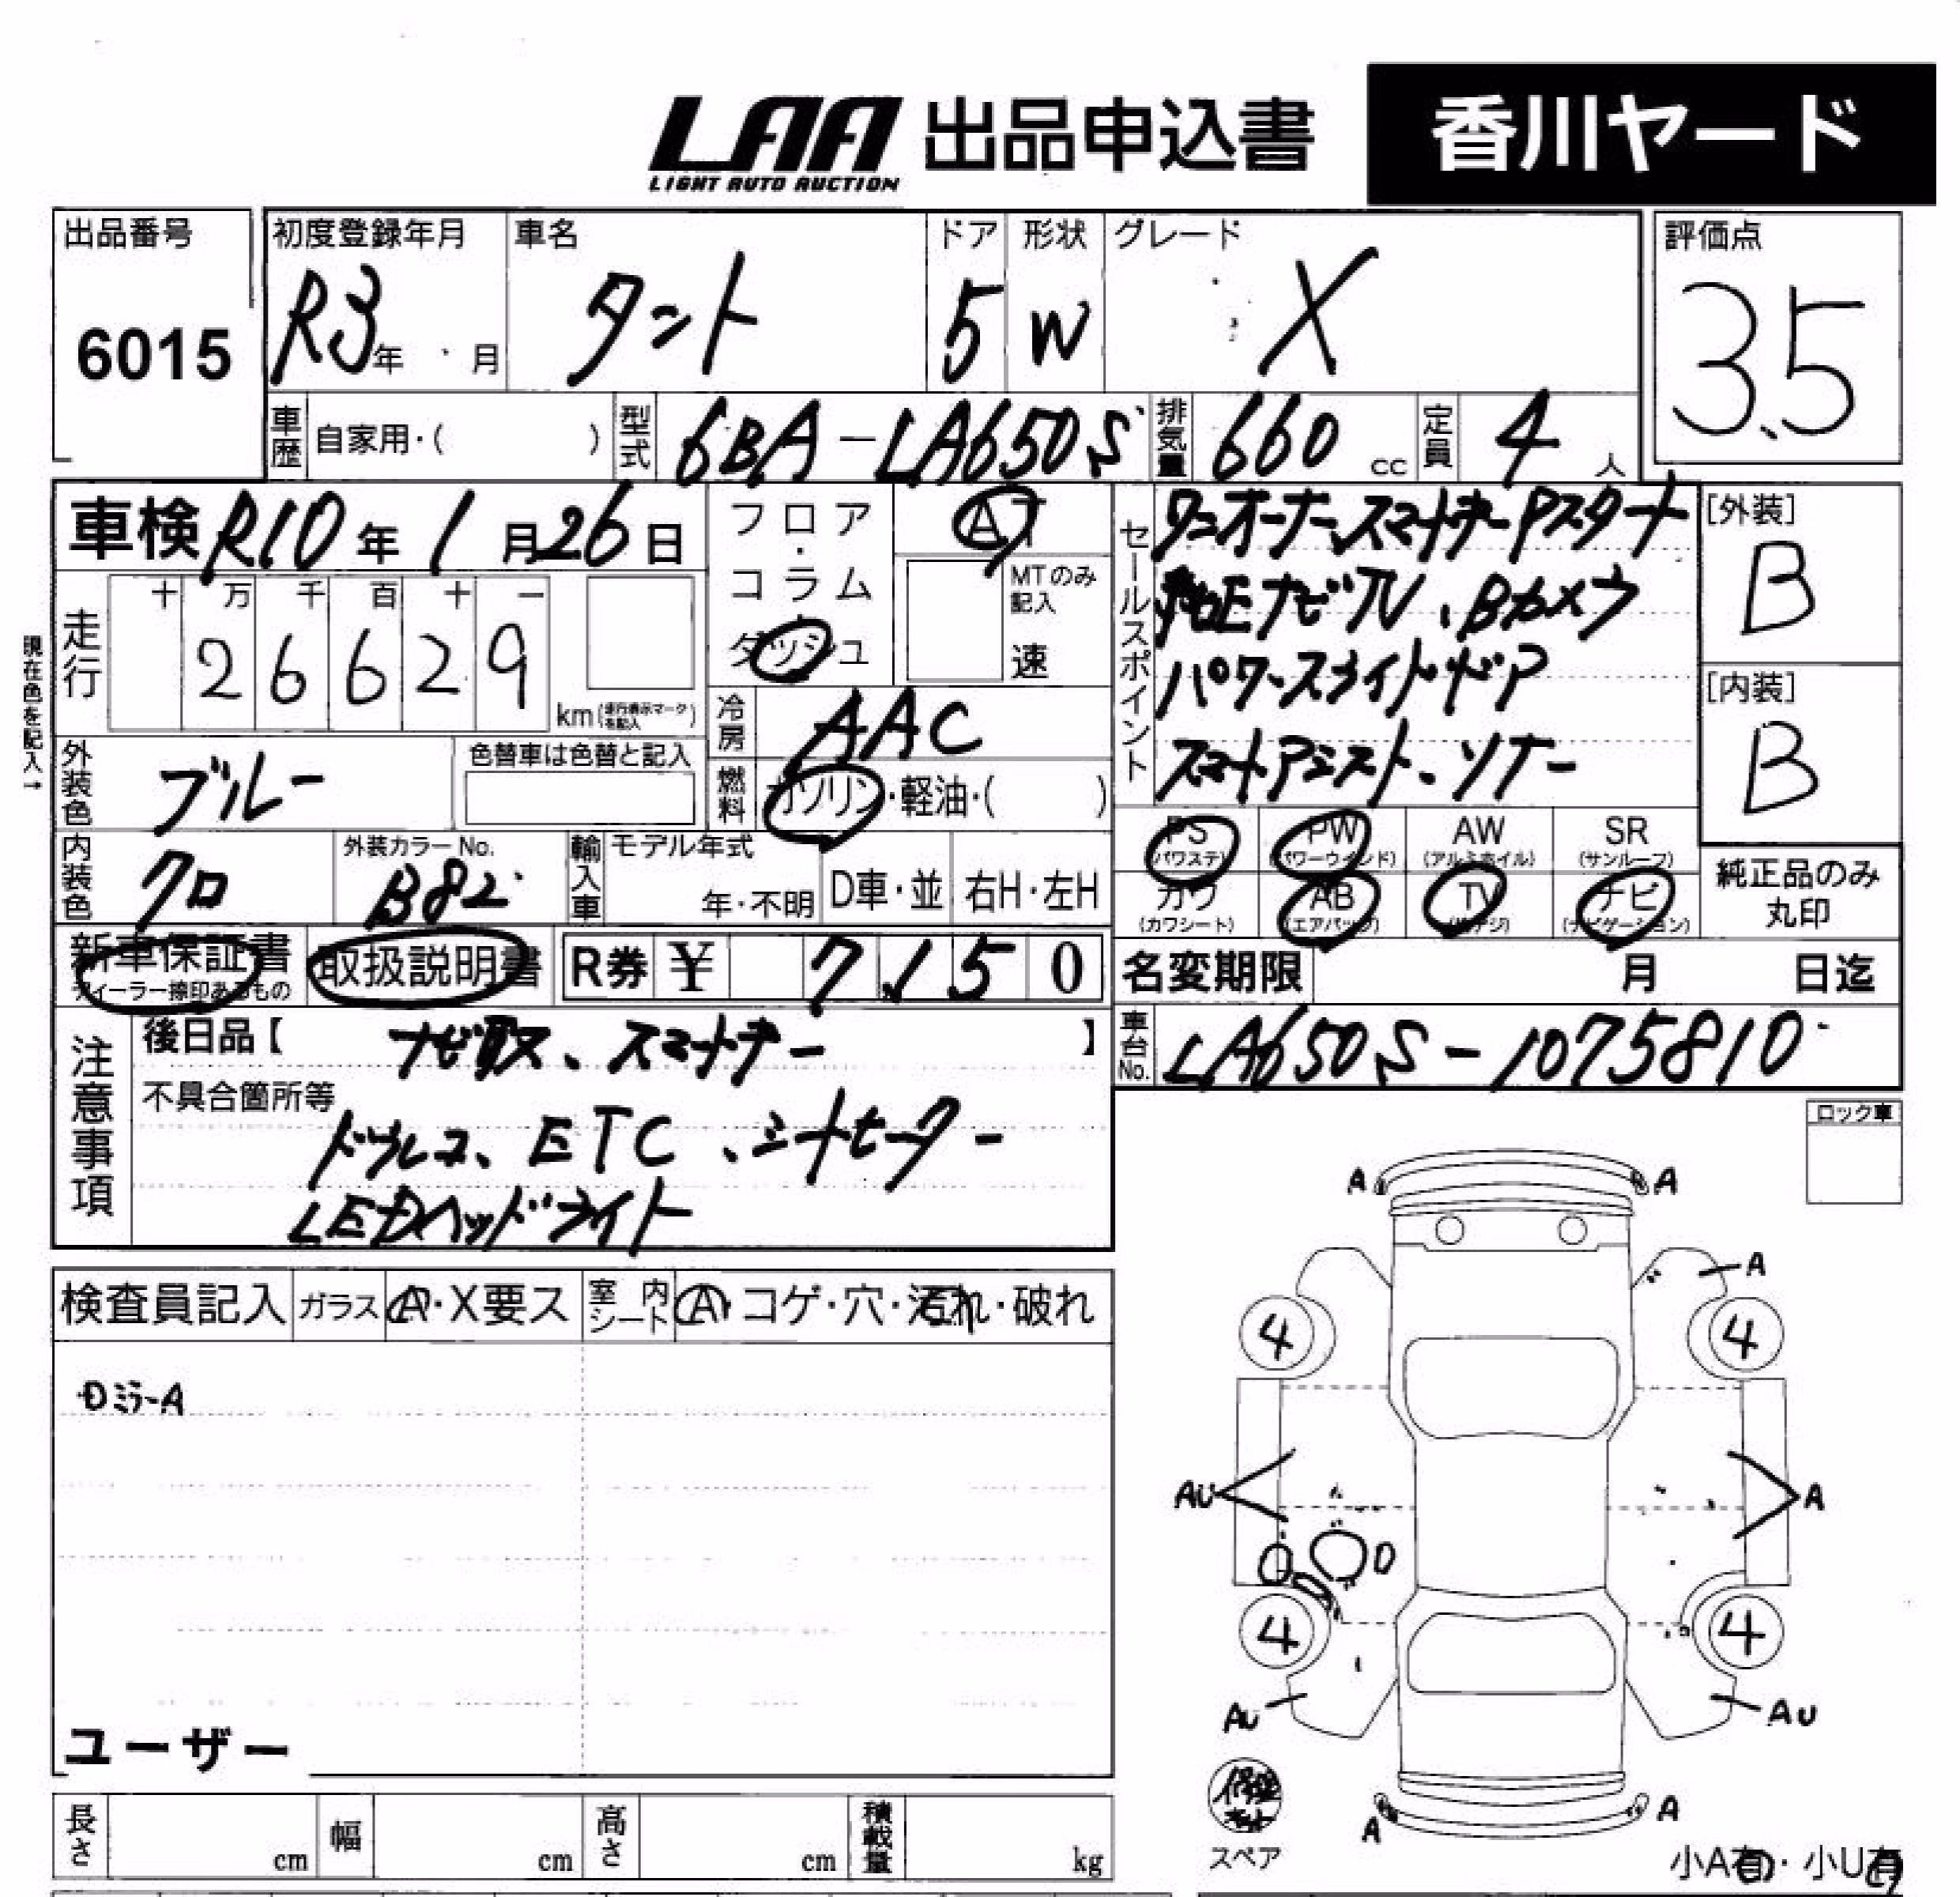 LAA 出品申込書 香川ヤード
LIGHT AUTO AUCTION
出品番号 初度登録年月 車名 ドア 形状 グレード 評価点
6015 R3年 月 タント 5 W X 3.5
車歴 自家用・( ) 型式 6BA-LA650S 排気量 660 cc 定員 4 人
車検 R10年 1月 26日
フロア・コラム・ダッシュ
AT
MTのみ記入
速
走行 十 万 千 百 十 一
2 6 6 2 9
km(走行表示マークを記入)
現在色を記入→
冷房 AAC
外装色 ブルー 色替車は色替と記入
燃料 ガソリン・軽油・( )
内装色 クロ 外装カラーNo. B82
輸入車 モデル年式 年・不明 D車・並 右H・左H
セールスポイント
ワンオーナー、スマートキー Pスタート
純正ナビTV、Bカメラ
パワースライドドア
スマートアシスト、ソナー
[外装]
B
[内装]
B
PS (パワステ) PW (パワーウインド) AW (アルミホイル) SR (サンルーフ)
カワ (カワシート) AB (エアバッグ) TV ナビ (ナビゲーション)
純正品のみ丸印
新車保証書 取扱説明書 R券 ¥ 7,150
ディーラー捺印あるもの
名変期限 月 日迄
車台No. LA650S-1075810
注意事項
後日品【 ナビ取ス、スマートキー 】
不具合箇所等
ドラレコ、ETC、シートヒーター
LEDヘッドライト
ロック車
検査員記入 ガラス A・X要ス 室内シート A・コゲ・穴・汚れ・破れ
ミラーA
ユーザー
A A
A
4 4
AU A
4 4
AU AU
A A
修理キット
スペア
小A有・小U有
長さ cm 幅 cm 高さ cm 積載量 kg